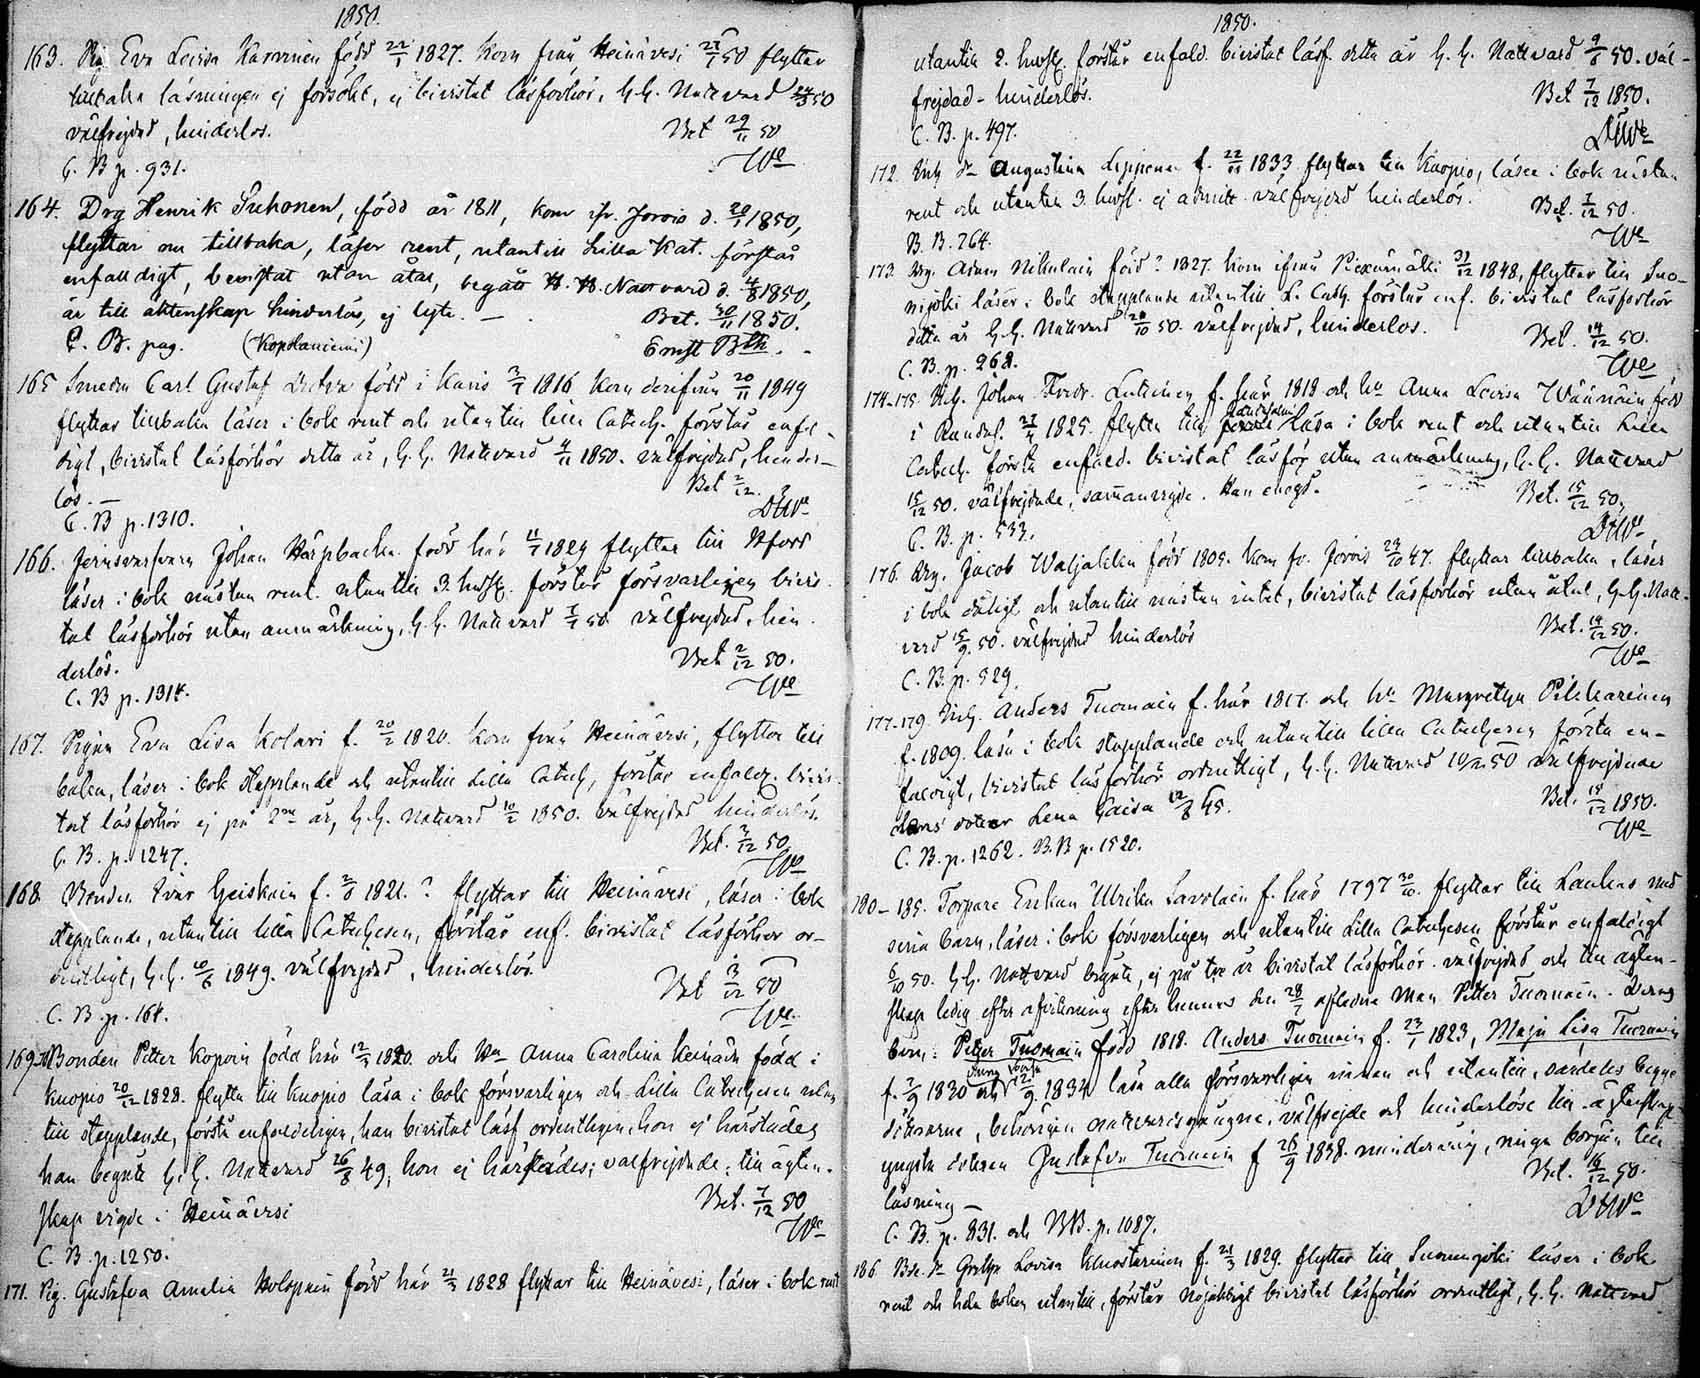 1850.
163. Pig. Eva Lovisa Karvinen född 22/1 1827. Kom från Heinävesi 27/1 50 flyttar
tillbaka läsningen ej försökt, ej bivistat läsförhör, H.H. Nattvard 24/3 50
välfrejdad, hinderlös. Bet 29/11 50
C. B p. 931. We
164. Drg Henrik Suhonen, född år 1811, kom ifr. Jorois d. 20/1 1850,
flyttar om tillbaka, läser rent, utantill Lilla Kat. förstår
enfalldigt, bevistat utan åtal, begått H. H. Nattvard d. 4/8 1850,
är till äktenskap hinderlös, ej lyte. — Bet. 30/11 1850.
C. B. pag. (Kopolaniemi) Ernst Bth.
165 Smeden Carl Gustaf född i Karis 3/7 1816 Kom derifrån 20/11 1849
flyttar tillbaka läser i bok rent och utantill lilla Catech. förstår enfal-
digt, bivistat läsförhör detta år, H.H. Nattvard 4/11 1850. välfrejdad, hinder-
lös. — Bet 2/12.
C. B p. 1310. DHWe
166. Johan född här 11/7 1824 flyttar till
läser i bok nästan rent. utantill 3. hufst. förstår försvarligen bivis-
tat läsförhör utan anmärkning, H.H. Nattvard 7/7 50 välfrejdad, hin-
derlös. Bet 2/12 50.
C. B p. 1314. We
167. Pigan Eva Lisa Kolari f. 20/2 1820. Kom från Heinävesi, flyttar till
baka, läser i bok stapplande och utantill Lilla Catech, förstår enfaldg. bivis-
tat läsförhör ej på 2ne år, H.H. Nattvard 10/2 1850. välfrejdad hinderlös
C. B. p. 1247. Bet. 3/12 50
We
168. Bonden Ivar Heiskain f. 2/8 1821. ? flyttar till Heinävesi, läser i bok
stapplande, utantill lilla Catechesen, förstår enf. bivistat läsförhör or-
dentligt, H.H. 10/6 1849. välfrejdad, hinderlös Bet 3/12 50
C. B. p. 164. We
169 Bonden Petter Kopoin född här 12/3 1820. och Hu Anna Carolina Keinäin född i
Kuopio 20/12 1828. flytta till Kuopio läsa i bok försvarligen och Lilla Catechesen utan
till stapplande, förstå enfaldeligen, han bivistat läsf ordentligen, hon ej härstädes
han begått H.H. Nattvard 26/8 49, hon ej härstädes; välfrejdade, till ägten-
skap vigde i Heinävesi Bet. 7/12 50
C. B. p. 1250. We
171. Pig. Gustafva Amalia Holopain född här 21/3 1828 flyttar till Heinävesi, läser i bok rent
1850.
utantill 2. hufst. förstår enfald. bivistat läsf. detta år H.H. Nattvard 9/6 50. väl-
frejdad - hinderlös. Bet 7/12 1850.
C. B. p. 497. DHWe
172. Augustina Lipponen f. 22/11 1833 flyttar till Kuopio, läser i bok nästan
rent och utantill 3. hufst. ej admitt. välfrejdad hinderlös. Bet. 7/12 50.
B. B. 264. We
173. Drg. Adam Nikulain född ? 1827. kom ifrån Piexämäki 31/12 1848, flyttar till Suo-
nijoki läser i bok stapplande utantill L. Catech. förstår enf. bivistat läsförhör
detta år H.H. Nattvard 20/10 50. välfrejdad, hinderlös. Bet. 14/12 50.
C. B. p. 968. We
174-175. Johan Fredr. Lutinen f. här 1818 och hu Anna Lovisa Wäänäin född
i Randas. 27/4 1825. flytta till läsa i bok rent och utantill Lilla
Catech. förstå enfald. bivistat läsför utan anmärkning, H.H. Nattvard
15/12 50. välfrejdade, sammanvigde. Han enögd. Bet. 15/12 50.
C. B. p. 533. DHWe
176. Drg. Jacob Waljakka född 1805. kom fr. Jorois 23/10 47. flyttar tillbaka, läser
i bok dåligt och utantill nästan intet, bivistat läsförhör utan åtal, H.H. Natt-
vard 15/9 50. välfrejdad hinderlös Bet. 14/12 50.
C. B. p. 529. We
177-179. Anders Tuomain f. här 1817. och hu Margretha Pitkäreinen
f. 1809. läsa i bok stapplande och utantill lilla Catechesen förstå en-
faldigt, bivistat läsförhör ordentligt, H.H. Nattvard 50 välfrejdade
deras dotter Lena Caisa 12/8 45. Bet. 15/12 1850.
C. B. p. 1262. B. B p. 1520. We
180-185. Torpare Enkan Ulrika Savolain f. här 1797 30/10. flyttar till Laukas med
sina barn, läser i bok försvarligen och utantill Lilla Catechesen förstår enfaldigt
6/10 50. H.H. Nattvard begått, ej på tre år bivistat läsförhör. välfrejdad och till ägten-
skap ledig efter afvittring efter hennes den 28/7 afledne Man Petter Tuomain. Deras
barn: Petter Tuomain född 1818. Anders Tuomain f. 23/1 1823, Maja Lisa Tuomain
f. 7/9 1830 och 12/9 1834 läsa alla försvarligen innan och utantill, särdeles begge
döttrarne, behörigen nattvardsgångne, välfrejde och hinderlöse till ägtenskap
yngsta dottren Gustafva Tuomain f 26/9 1838. minderårig, ringa början till
läsning — Bet. 16/12 50.
C. B. p. 831. och BB. p. 1087. DHWe
186. Greta Lovisa Knuutinen f. 21/3 1829. flyttar till Suonenjoki läser i bok
rent och hela boken utantill, förstår nöjaktigt bivistat läsförhör ordentligt, H.H. Nattvard